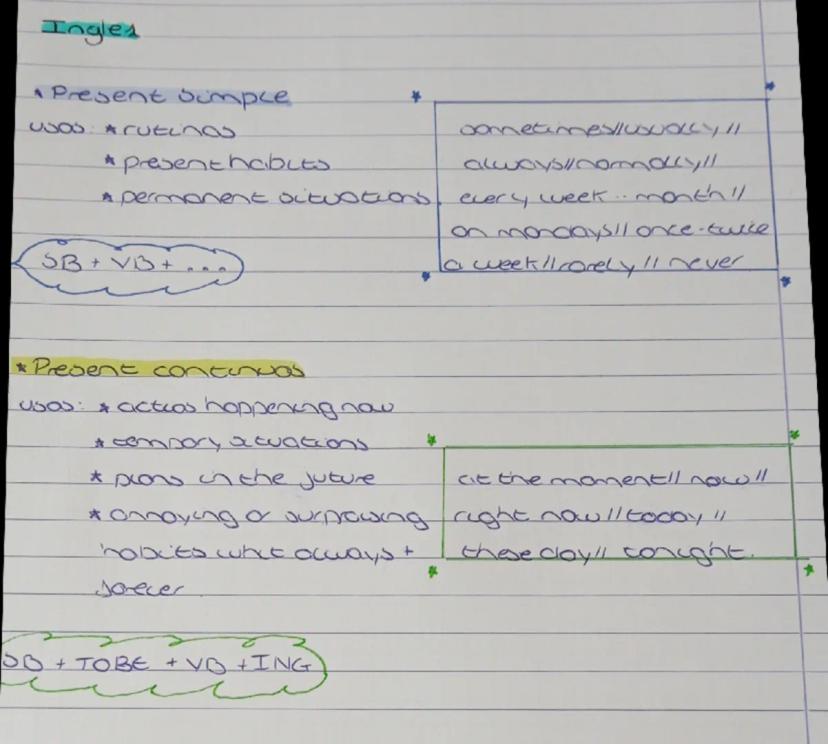 Ingles
* Present simple
usos: * rutinas
* present habits
* permanent situations
sometimes//usually//
always//normally//
every week .. month//
on mondays// once-twice
a week//rarely// never
SB + VB + ...
* Present continuos
usos: * actios happening now
* tempory situations
* plans in the juture
* annoying or surprising
habits whit always +
forever
at the moment// now//
right now// today//
these day// tonight.
SB + TOBE + VB + ING